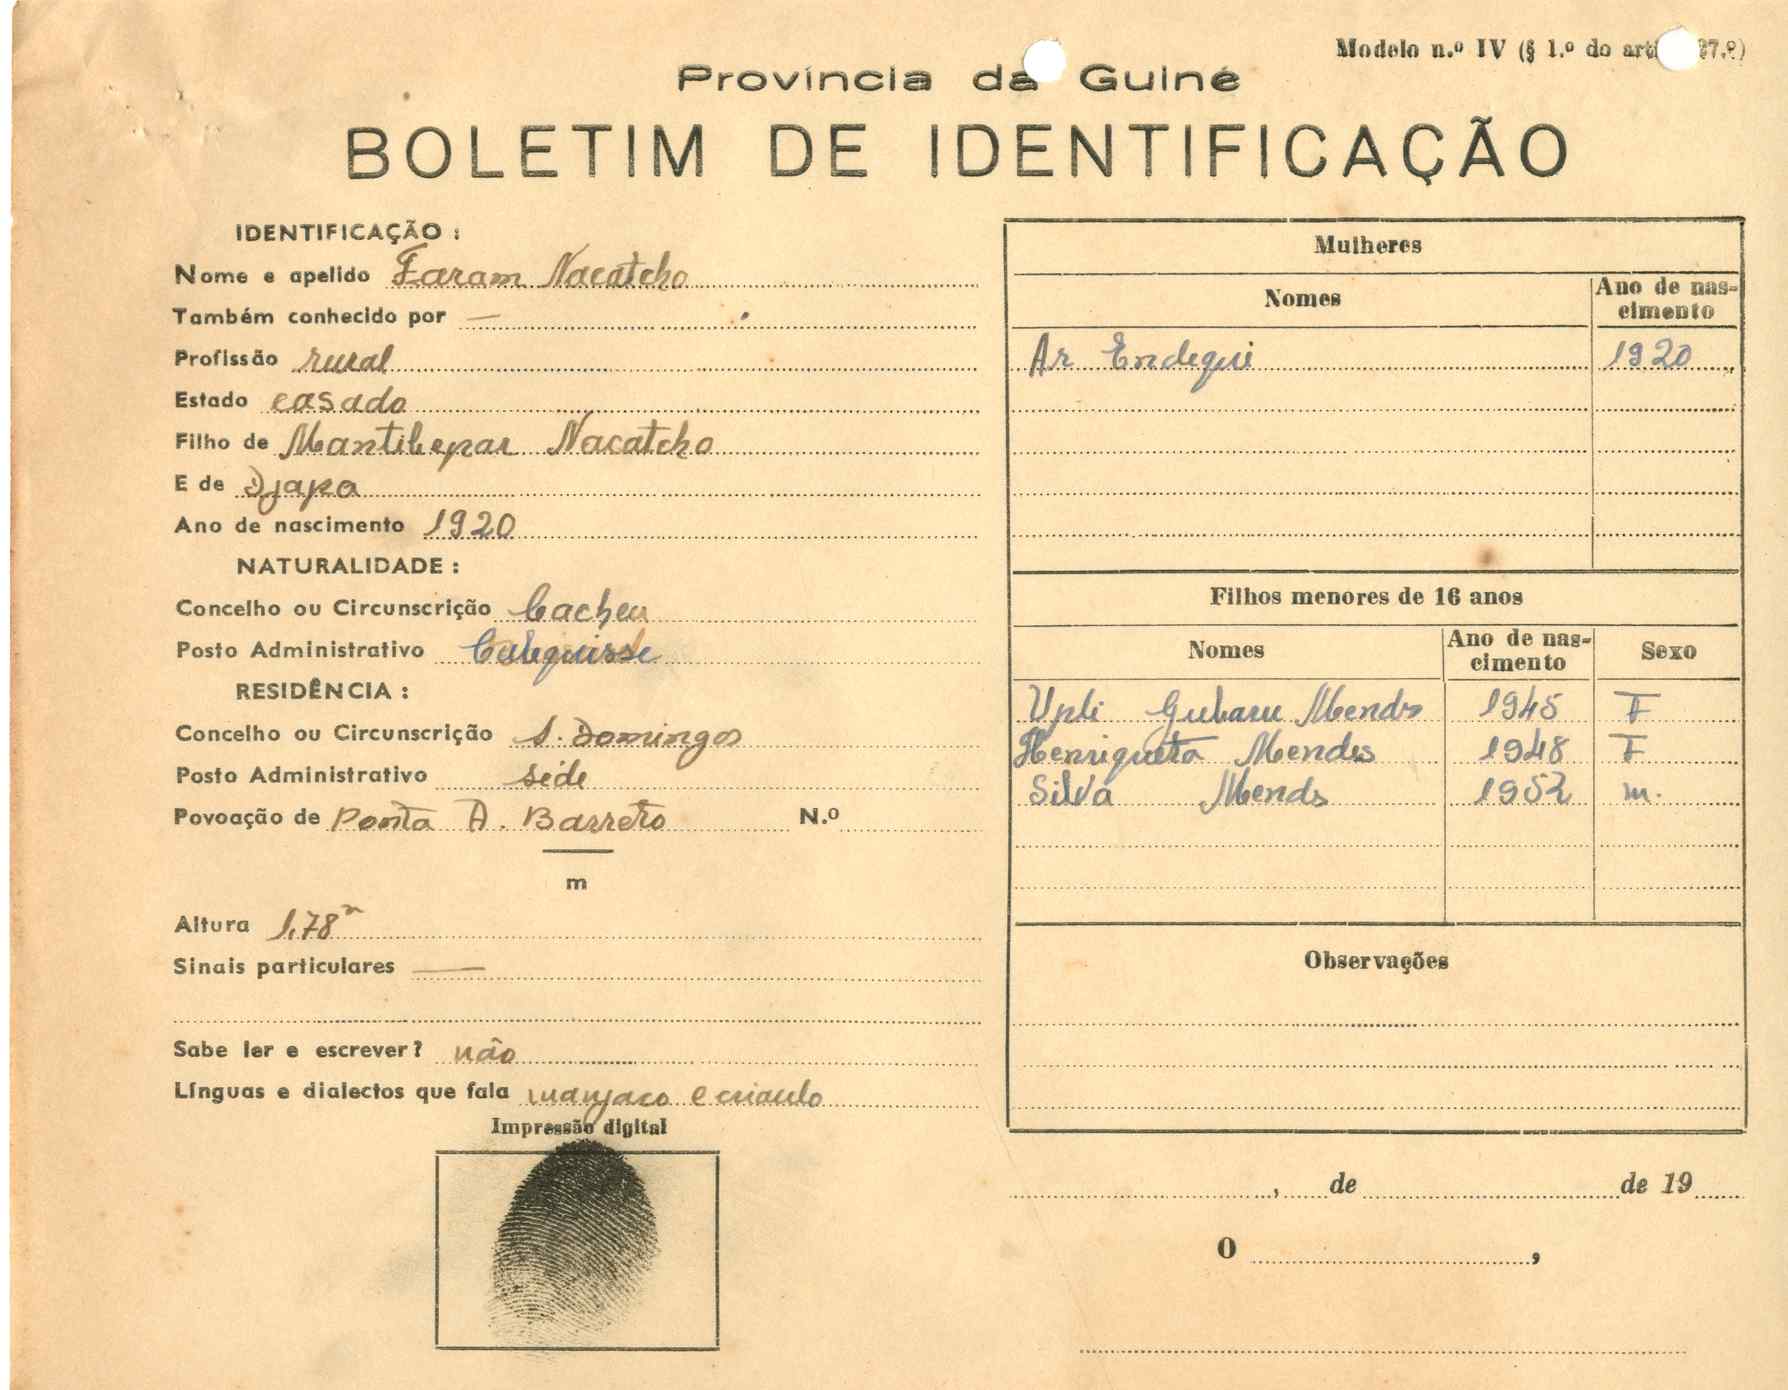 Modelo n.º IV (§ 1.º do art 37.º)
Província da Guiné
BOLETIM DE IDENTIFICAÇÃO
IDENTIFICAÇÃO :
Nome e apelido Faram Nacatcho
Também conhecido por —
Profissão rural
Estado casado
Filho de Mantibepar Nacatcho
E de Djapa
Ano de nascimento 1920
NATURALIDADE :
Concelho ou Circunscrição Cacheu
Posto Administrativo Calequisse
RESIDÊNCIA :
Concelho ou Circunscrição S. Domingos
Posto Administrativo séde
Povoação de Ponta A. Barreto N.º
m
Altura 1,78m
Sinais particulares —
Sabe ler e escrever? não
Línguas e dialectos que fala manjaco e crioulo
Impressão digital
Mulheres
Nomes Ano de nas-
cimento
Ar Endequi 1920
Filhos menores de 16 anos
Nomes Ano de nas- Sexo
cimento
Upli Gubaru Mends 1945 F
Henriqueta Mendes 1948 F
Silva Mends 1952 m.
Observações
, de de 19
O ,